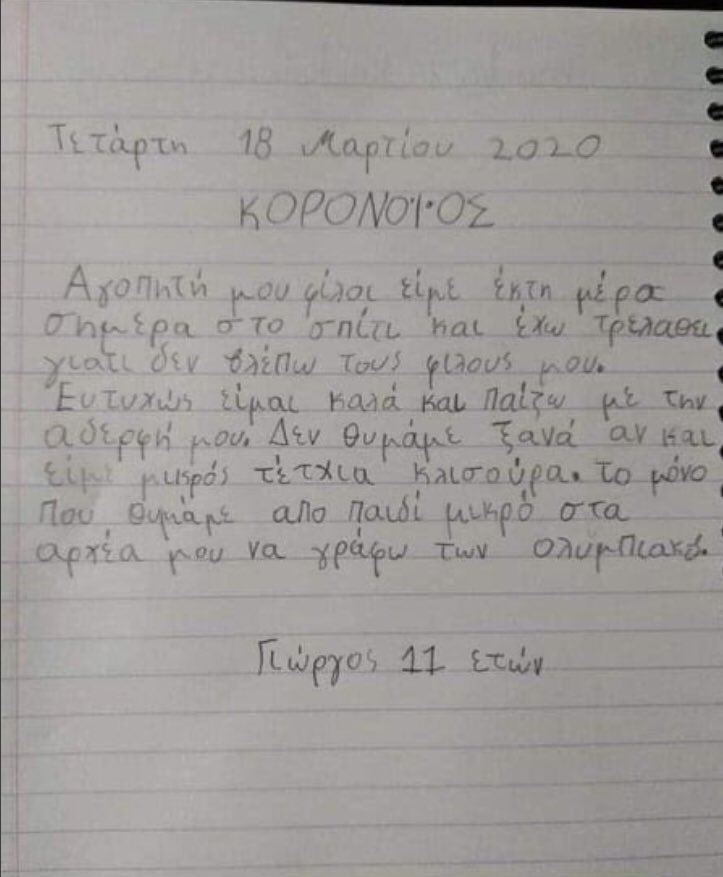 Τετάρτη 18 Μαρτίου 2020
ΚΟΡΟΝΟΪΟΣ
Αγοπητή μου φίλοι είμε έκτη μέρα
σημερα στο σπίτι και έχω τρελαθει
γιατι δεν βλέπω τους φιλους μου.
Ευτυχώς είμαι καλά και παίζω με την
αδερφή μου. Δεν θυμάμε ξανά αν και
είμε μικρός τέτχια κλισούρα. το μόνο
που θυμάμε απο παιδί μικρό στα
αρχέα μου να γράφω των ολυμπιακό.
Γιώργος 11 ετών